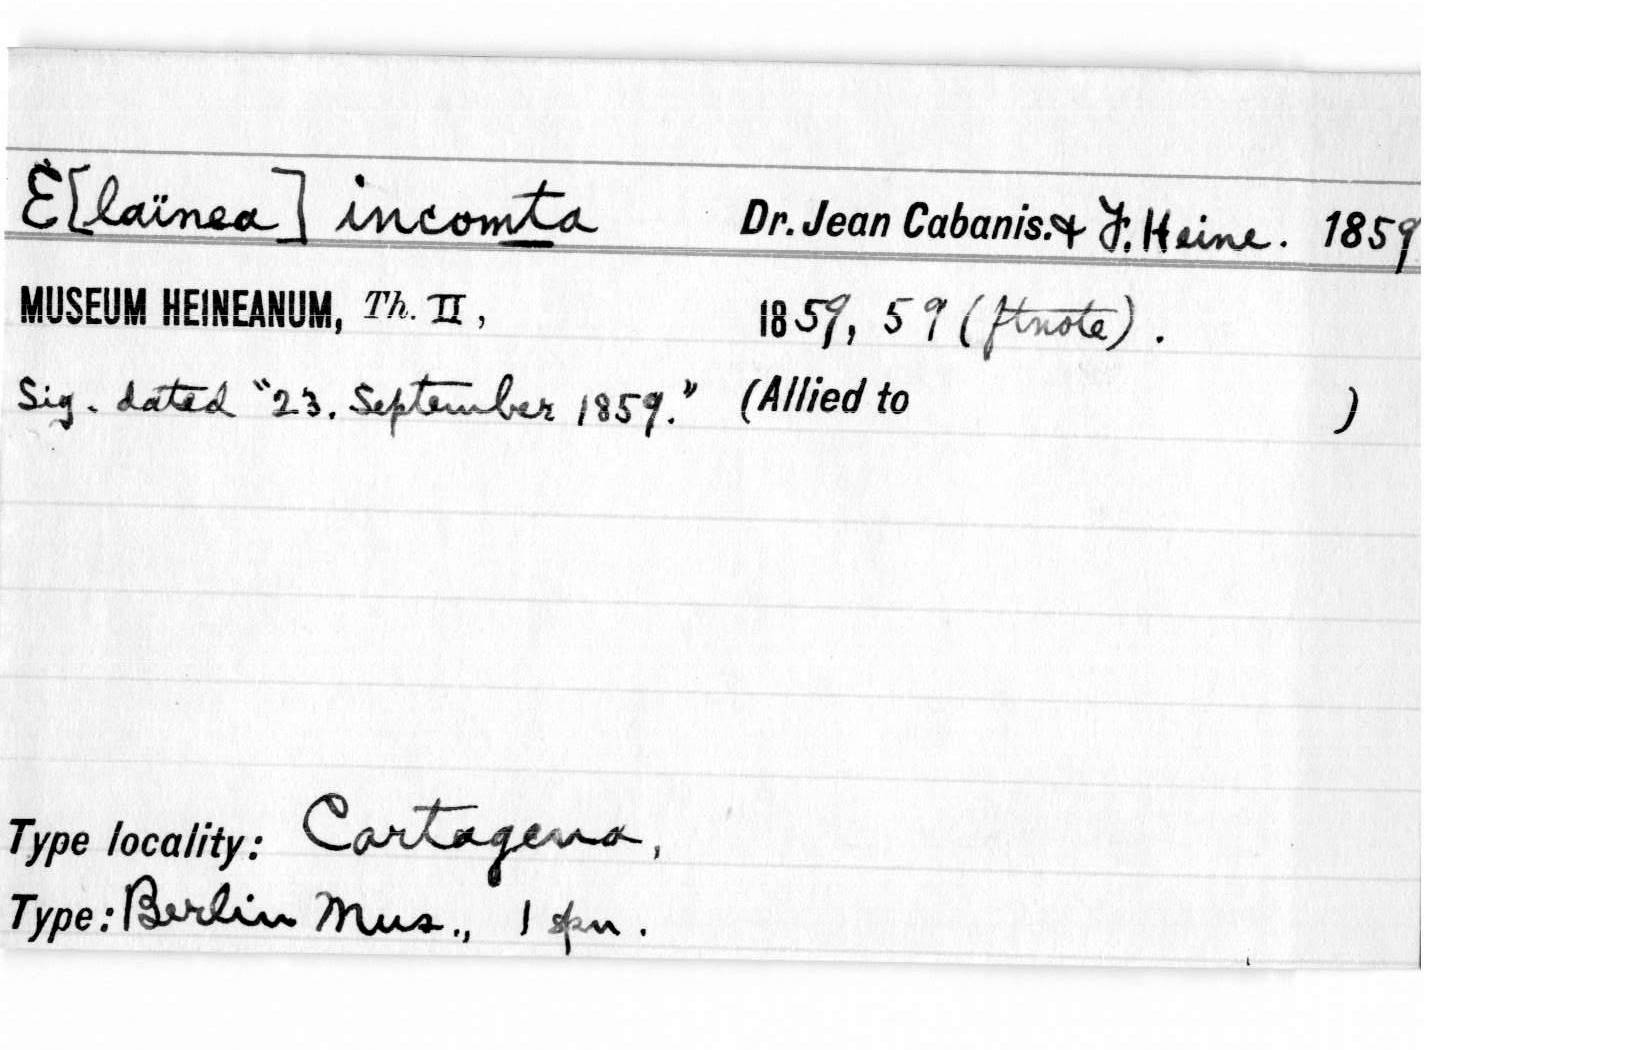 E[laïnea] incomta Dr. Jean Cabanis. & F. Heine. 1859
MUSEUM HEINEANUM, Th. II, 1859, 59 (ftnote).
Sig. dated "23. September 1859." (Allied to )
Type locality: Cartagena,
Type: Berlin Mus., 1 spn.